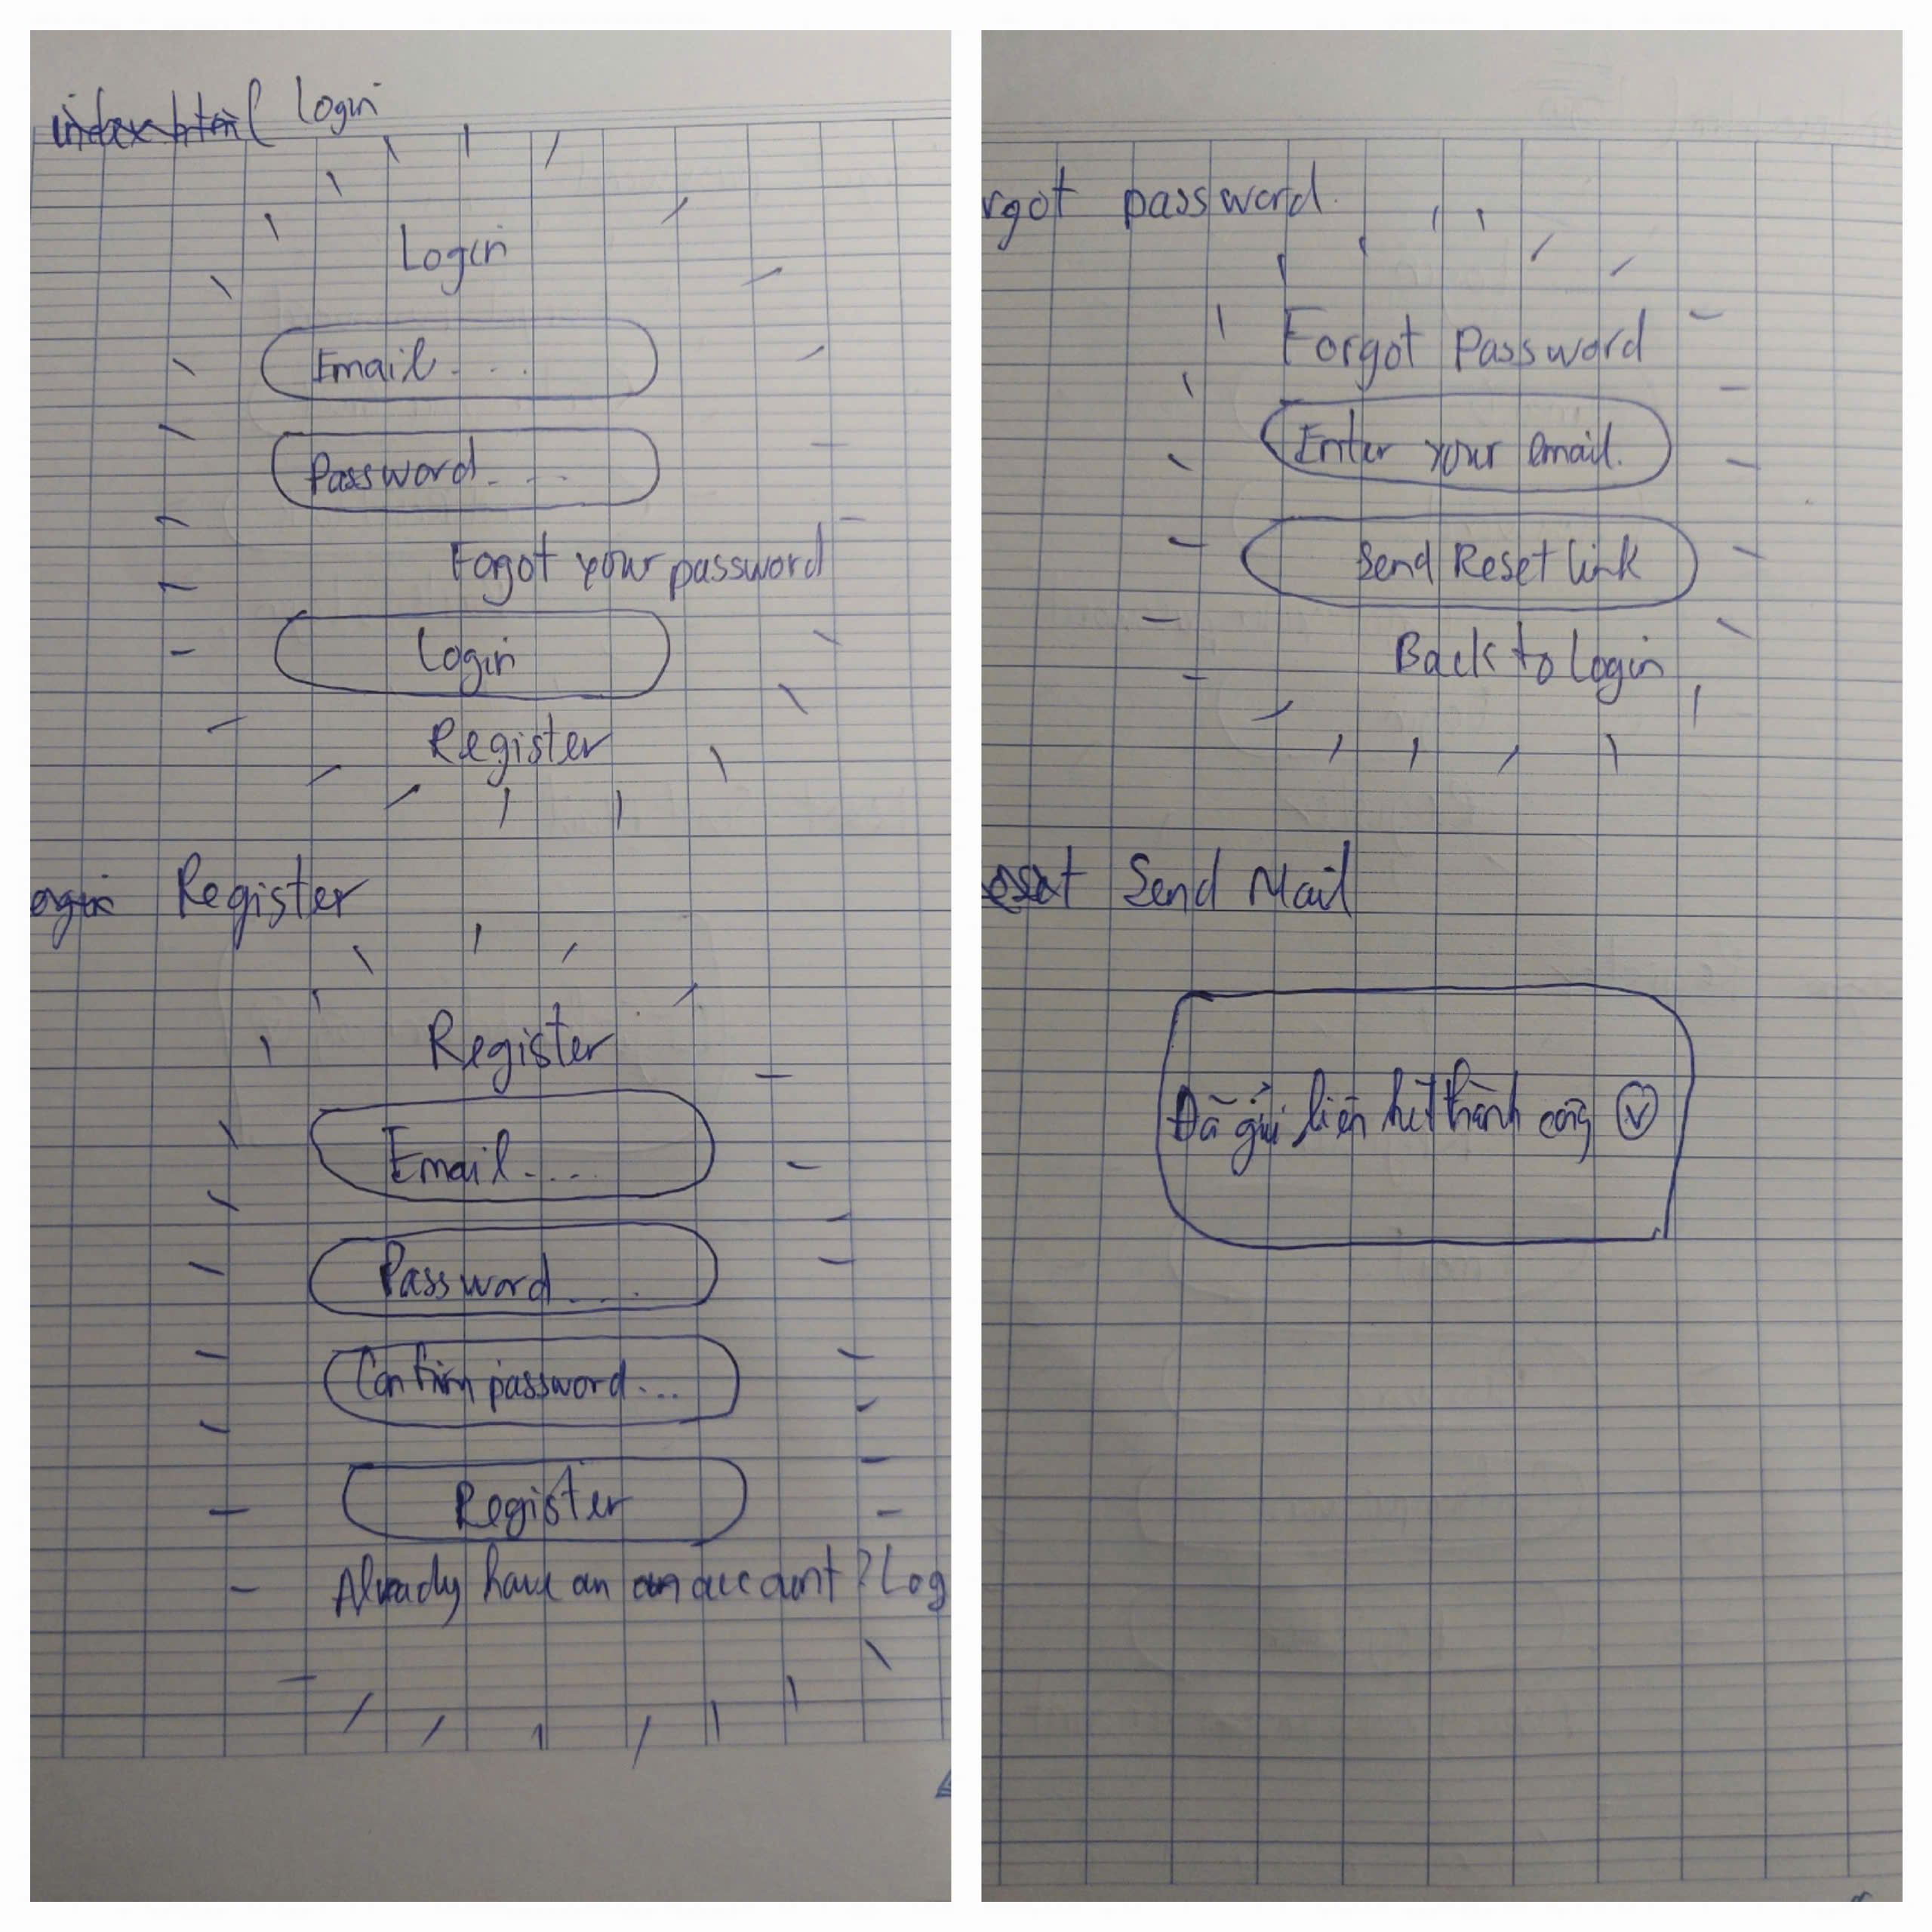 index.html Login
Login
Email....
Password....
Fogot your password
Login
Register
ogin Register
Register
Email....
Password....
Confirm password...
Register
Already have an an account? Log
rgot password.
Forgot Password
Enter your email.
Send Reset link
Back to Login
eset Send Mail
Đã gửi liên hệ thành công